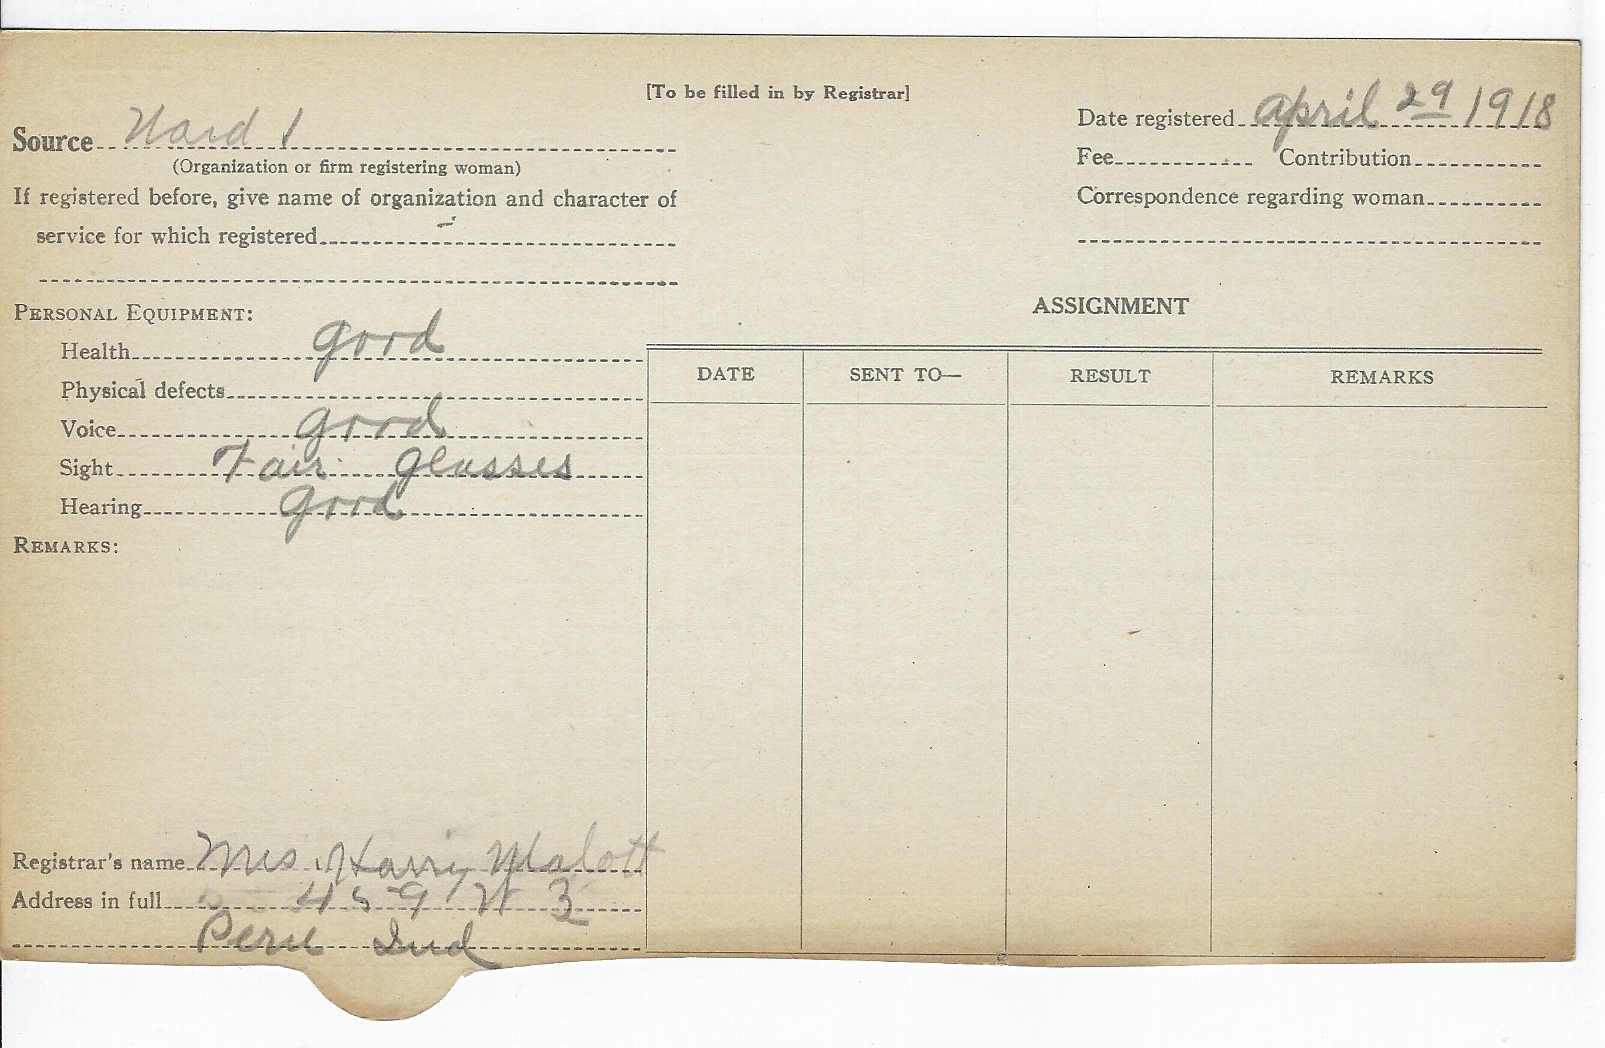 [To be filled in by Registrar]
Source Ward 1
(Organization or firm registering woman)
If registered before, give name of organization and character of
service for which registered -
Date registered April 29 1918
Fee Contribution
Correspondence regarding woman
PERSONAL EQUIPMENT:
Health good
Physical defects
Voice good
Sight Fair glasses
Hearing good
REMARKS:
ASSIGNMENT
DATE SENT TO— RESULT REMARKS
Registrar's name Mrs Harry Malott
Address in full 459 W 3
Peru Ind